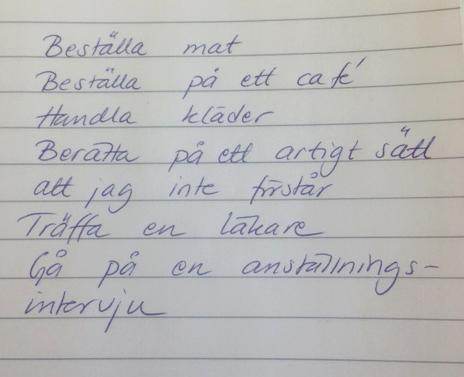 Beställa mat
Beställa på ett café
Handla kläder
Berätta på ett artigt sätt
att jag inte förstår
Träffa en läkare
Gå på en anställnings-
intervju